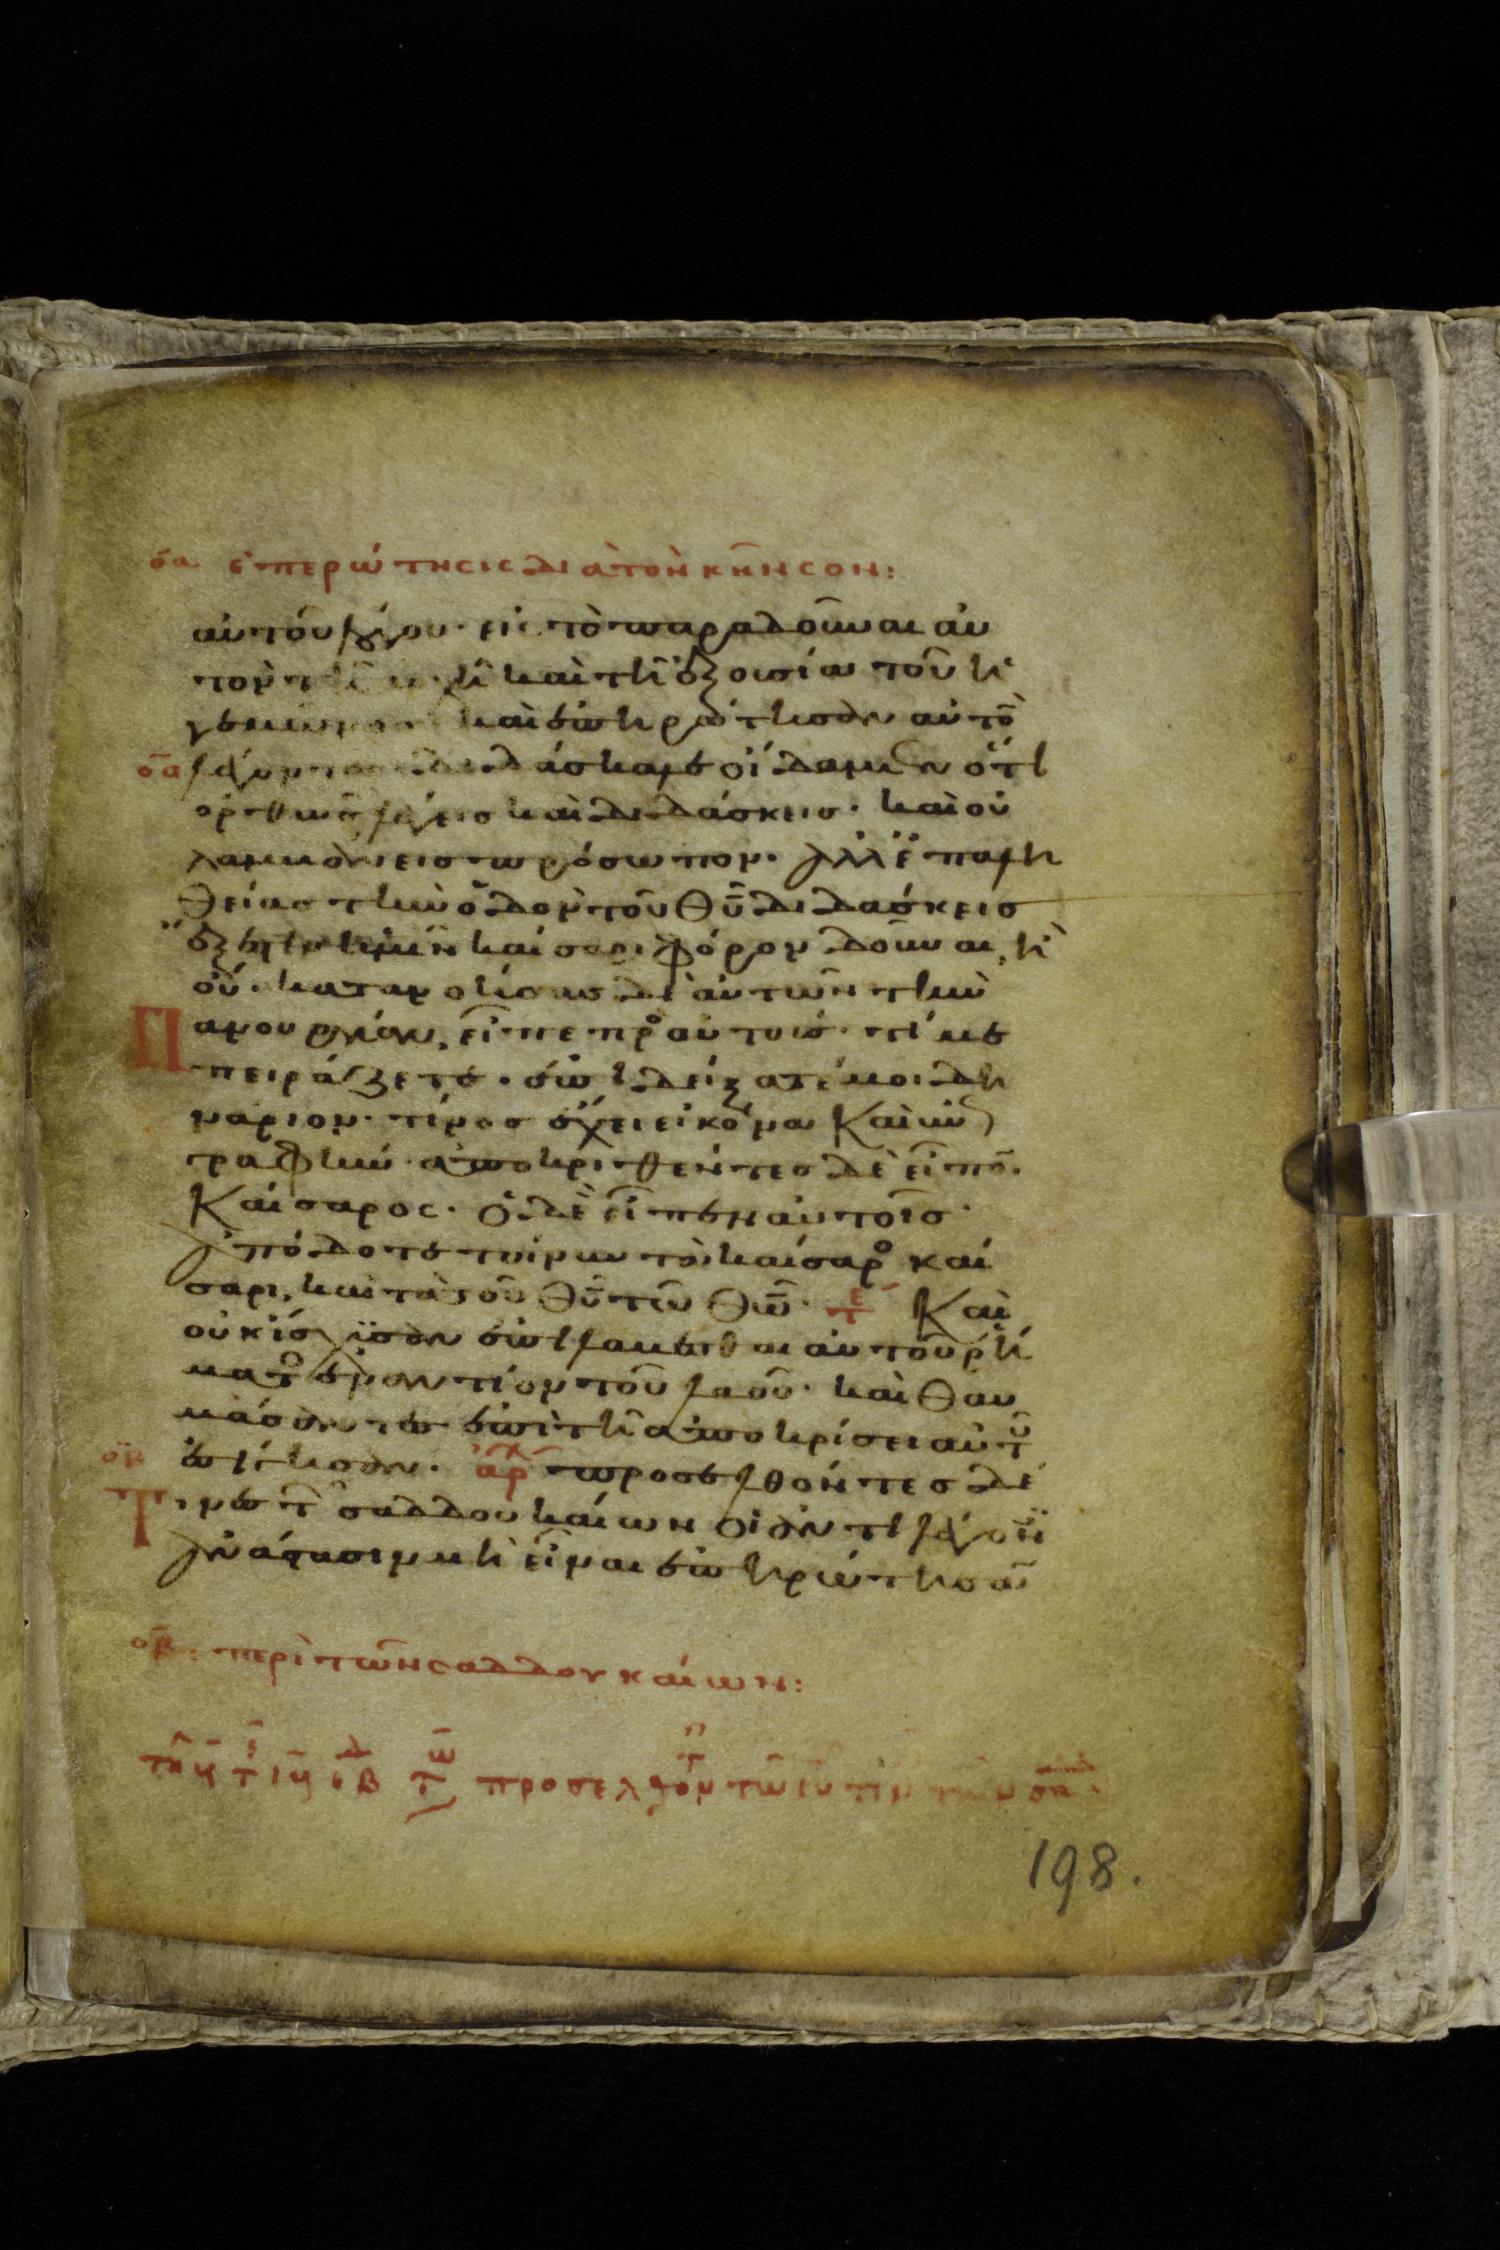 οα ἐπερώτησις διὰ τὸν κῆνσον:
αὐτοῦ λόγου· εἰς τὸ παραδοῦναι αὐ
τὸν τῆ ἀρχῆ καὶ τῆ ἐξουσία τοῦ ἡ
γεμόνος καὶ ἐπηρώτησαν αὐτὸ
οα λέγοντες διδάσκαλε οἴδαμεν ὅτι
ὀρθῶς λέγεις καὶ διδάσκεις· καὶ οὐ
λαμβάνεις πρόσωπον· ἀλλ' ἐπ' ἀλη
θείας τὴν ὁδὸν τοῦ θῦ διδάσκεις
ἔξεστιν ἡμῖν καίσαρι φόρον δοῦναι, ἢ
οὔ· κατανοήσας δὲ αὐτῶν τὴν
Πανουργίαν, εἶπε προ αὐτούς· τί με
πειράζετε· ἐπιδείξατέ μοι δη
νάριον· τίνος ἔχει εἰκόνα Καὶ ἐπι
γραφήν· ἀποκριθέντες δὲ εἶπο·
Καίσαρος· ὁ δὲ εἶπεν αὐτοῖς·
ἀπόδοτε τοίνυν τὰ καίσαρο καί
σαρι, καὶ τὰ τοῦ θῦ τῶ θῶ· τε Καὶ
οὐκ ἴσχυσαν ἐπιλαβέσθαι αὐτοῦ ῥή
ματο ἐναντίον τοῦ λαοῦ· καὶ θαυ
μάσαντες ἐπὶ τῆ ἀποκρίσει αὐτου
οβ ἐσίγησαν· αρχ προσελθόντες δέ
Τινες τ σαδδουκαίων οἱ ἀντιλέγοντ
ἀνάστασιν μὴ εἶναι ἐπηρώτησα
οβ: περὶ τῶν σαδδουκαίων:
προσελθον τῶ ιυ τιν των σαδ
198.